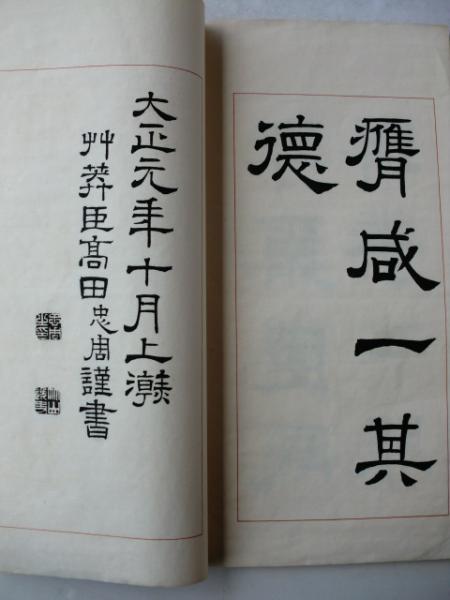 膺咸一其
德
大正元年十月上澣
艸莽臣髙田忠周謹書